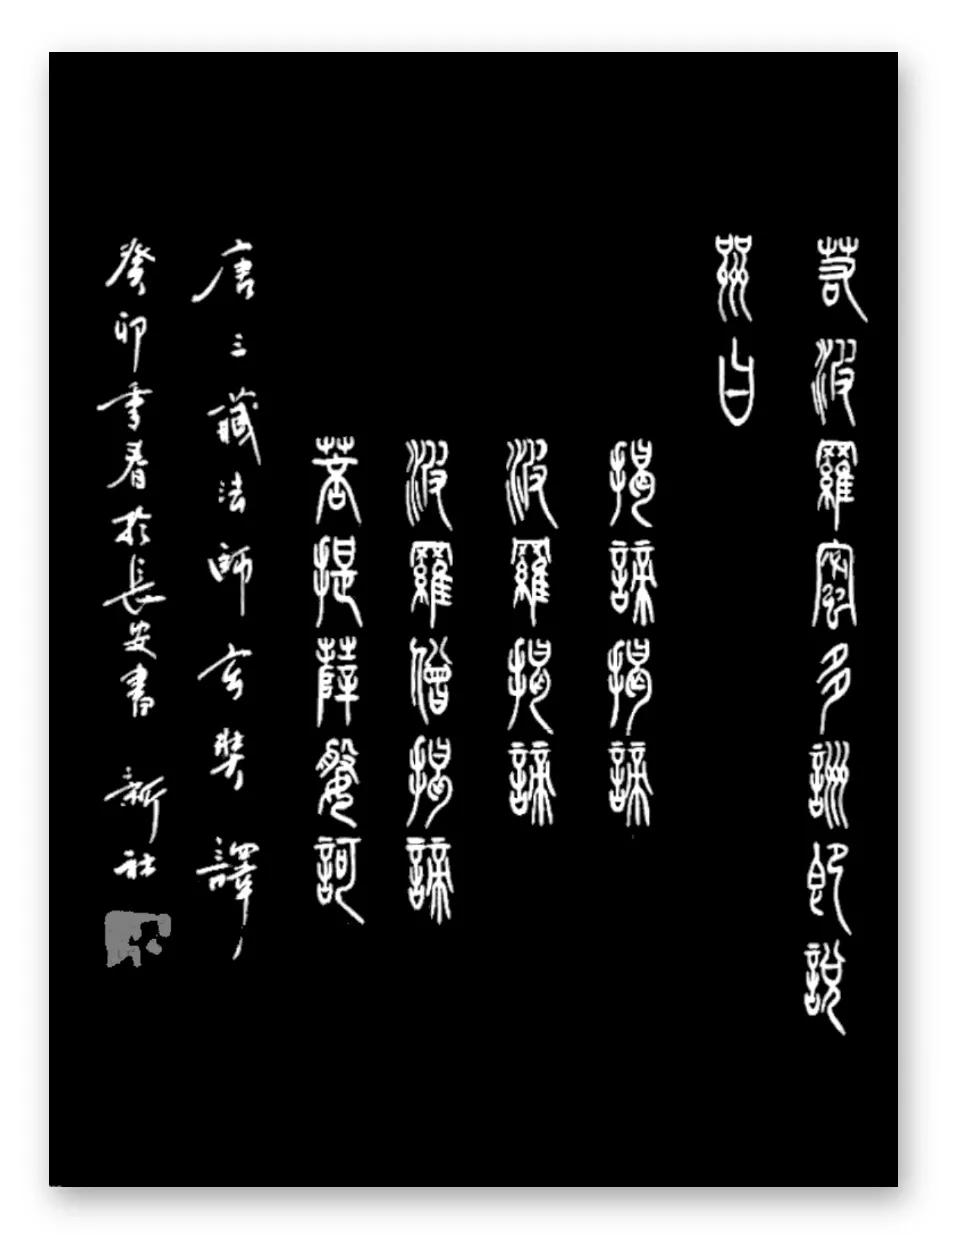 若波羅蜜多詶即說
曰
揭諦揭諦
波羅揭諦
波羅僧揭諦
菩提薩媻訶
唐三藏法師玄奘譯
癸卯季春於長安書 新社